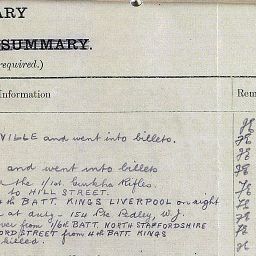 ARY
SUMMARY.
required.)
Information
Rem
VILLE and went into billets.
and went into billets
the 1/1st. Gurkha Rifles.
to HILL STREET.
4th BATT. KINGS LIVERPOOL on right
at duty - 154 Pte Pedley, W.J.
over from 1/6th BATT. NORTH STAFFORDSHIRE
ORD STREET from 4th BATT. KINGS
killed.